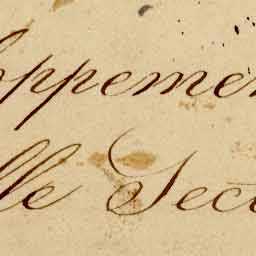 ppemen
lle Sect